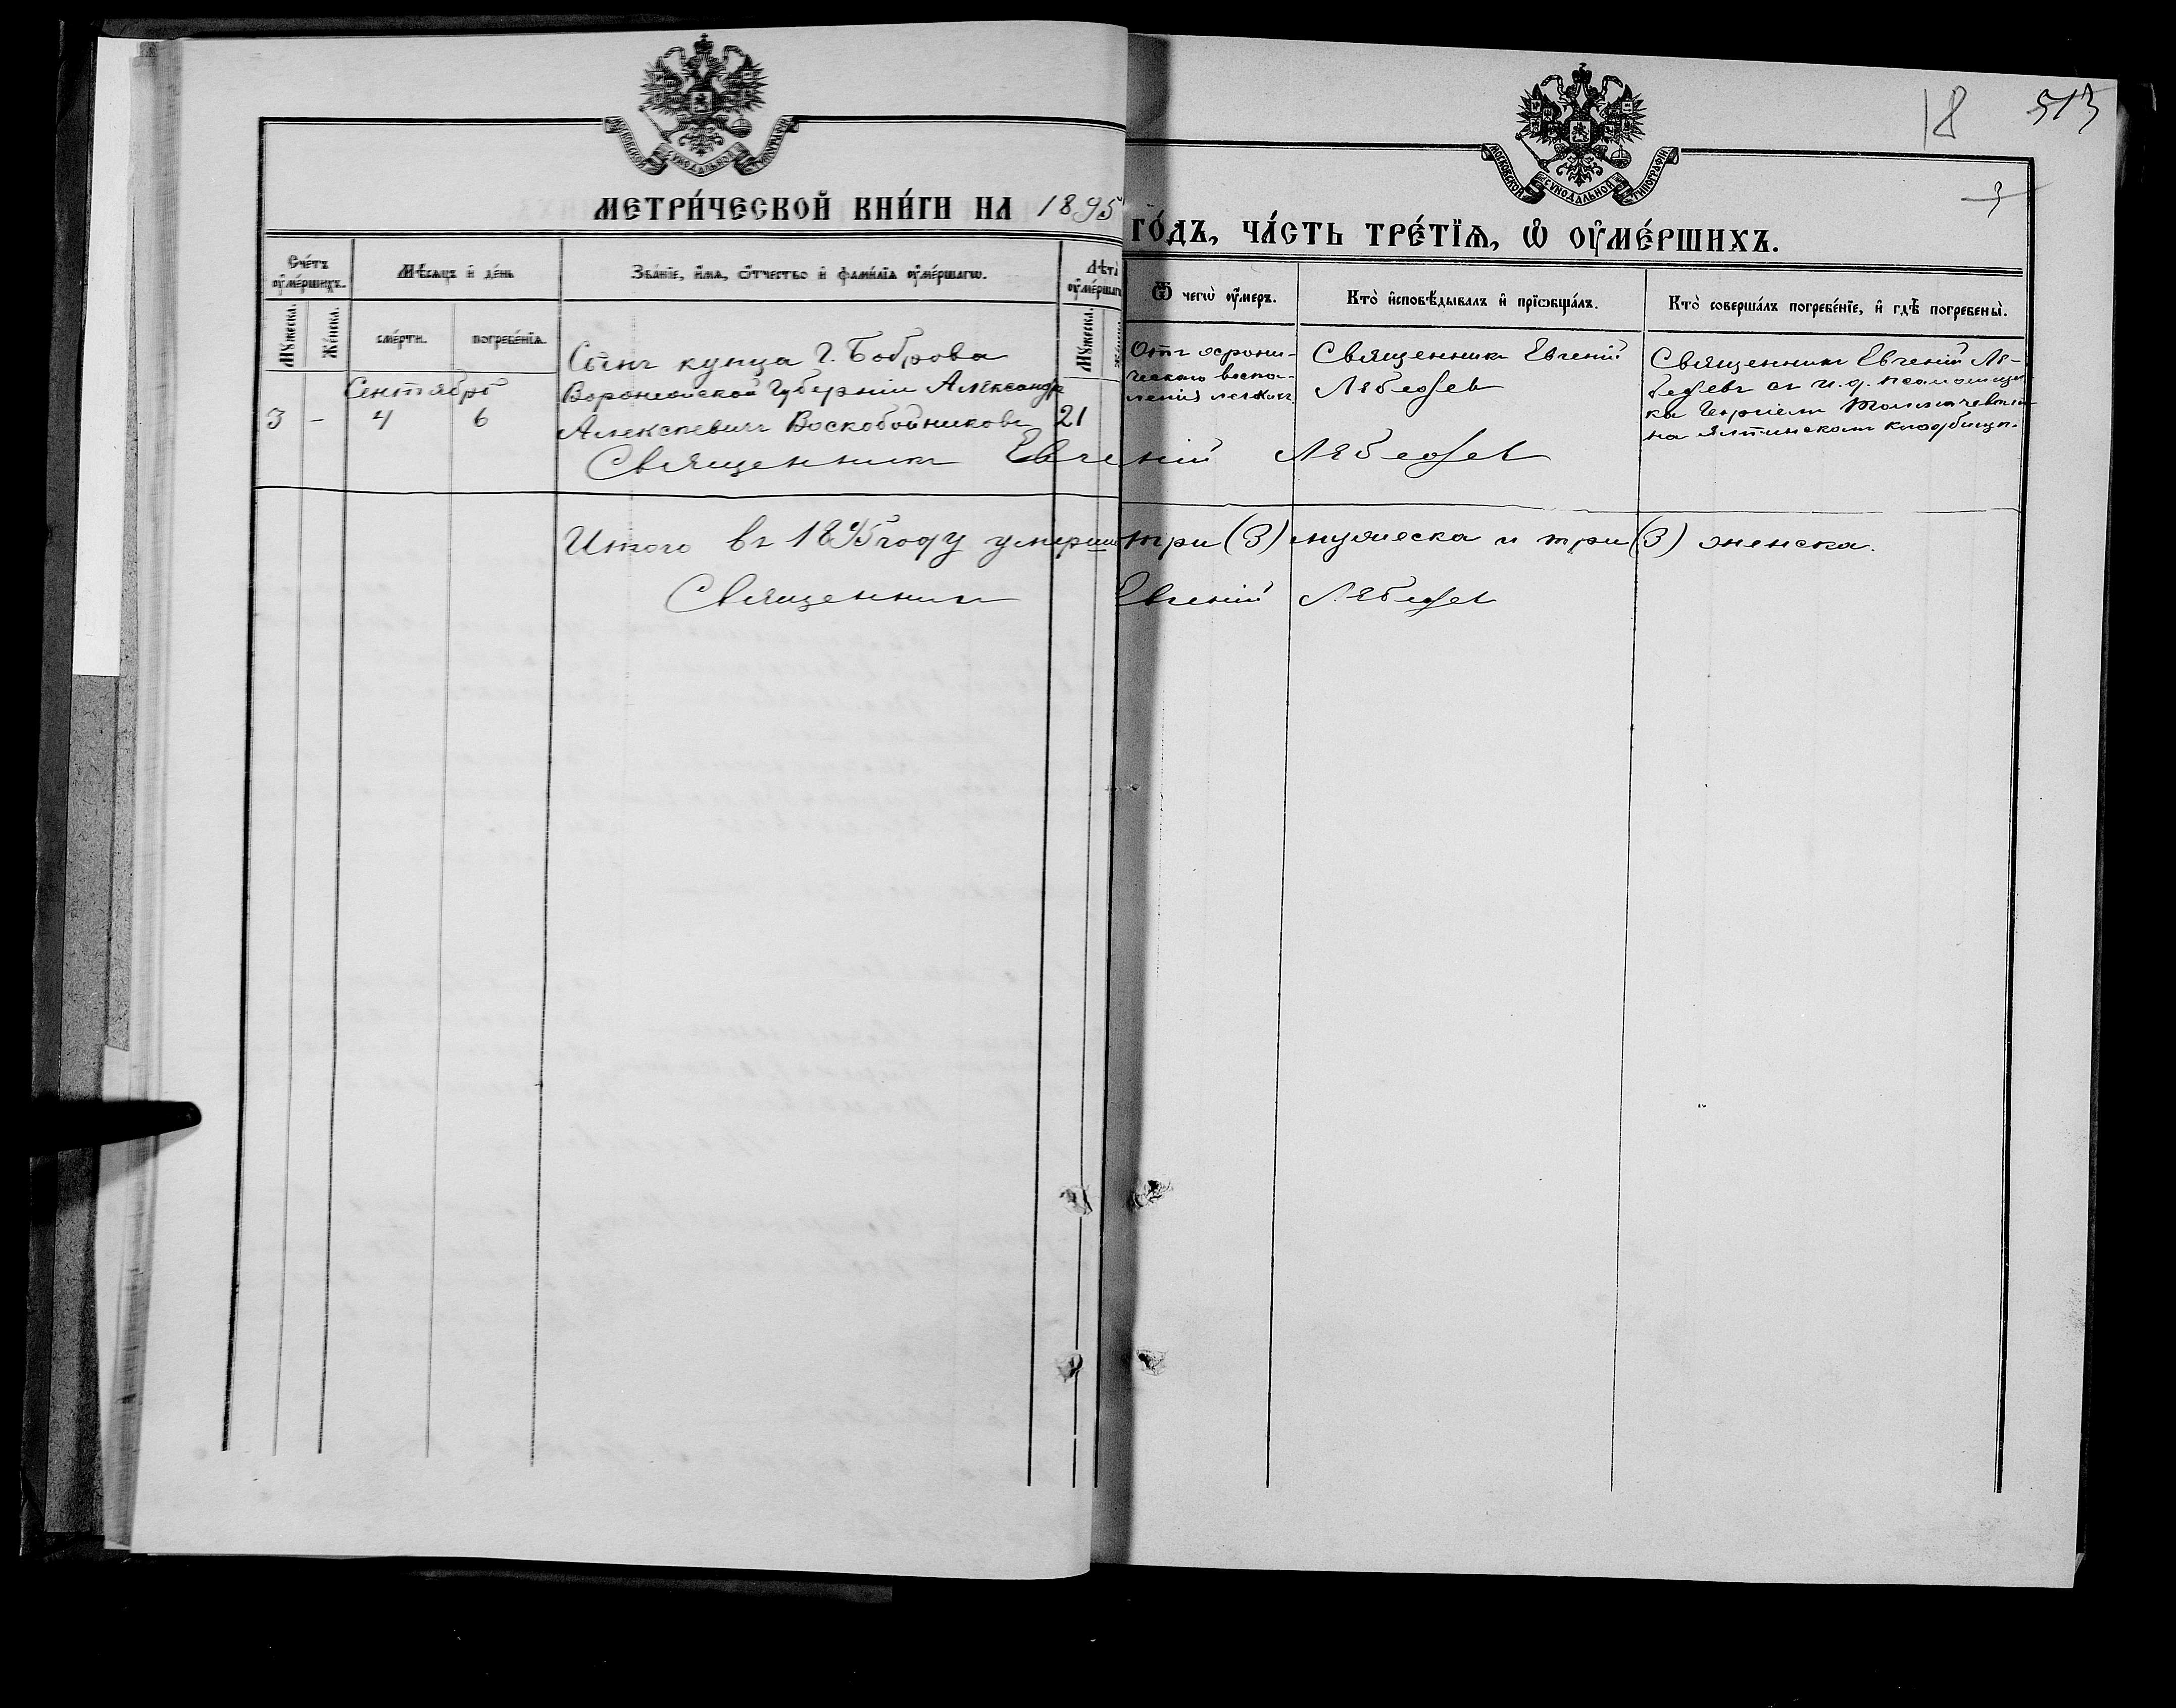 18 513
3
МОСКОВСКОЙ СУНОДАЛЬНОЙ ТИПОГРАФІИ
МОСКОВСКОЙ СУНОДАЛЬНОЙ ТИПОГРАФІИ
МЕТРИ́ЧЕСКОЙ КНИ́ГИ НА 1895
ГО́ДЪ, ЧА́СТЬ ТРЕ́ТЇѦ, Ѡ҆ ОУ҆МЕ́РШИХЪ.
Сче́тъ оу҆ме́ршихъ.
Мꙋ́жеска.
Же́нска.
Мѣ́сѧцъ и҆ де́нь
сме́рти.
погребе́нїѧ.
Зва́нїе, и҆́мѧ, ѻ҆́тчество и҆ фами́лїѧ оу҆ме́ршагѡ.
Лѣта̀ оу҆ме́ршаг
Мꙋ́жеска.
Ѿ чегѡ̀ оу҆́меръ.
Кто̀ и҆сповѣ́дывалъ и҆ прїѡбща́лъ.
Кто̀ соверша́лъ погребе́нїе, и҆ гдѣ̀ погребены̀.
Сентябрь
3 - 4 6
Сынъ купца г. Боброва
Воронежской Губерніи Александръ
Алексѣевичъ Воскобойниковъ
21
Отъ хрони-
ческаго воспа-
ленія легкихъ
Священникъ Евгеній
Лебедевъ
Священникъ Евгеній Ле-
бедевъ съ и. д. псаломщи-
ка
на Ялтинскомъ кладбищѣ.
Священникъ Евгеній Лебедевъ
Итого въ 1895 году умерши три (3) мужеска и три (3) женска.
Священникъ Евгеній Лебедевъ